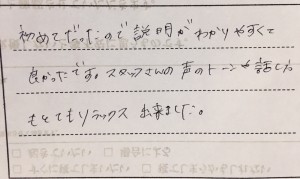 初めてだったので説明がわかりやすくて
良かったです。スタッフさんの声のトーンや話し方
もとてもリラックス出来ました。